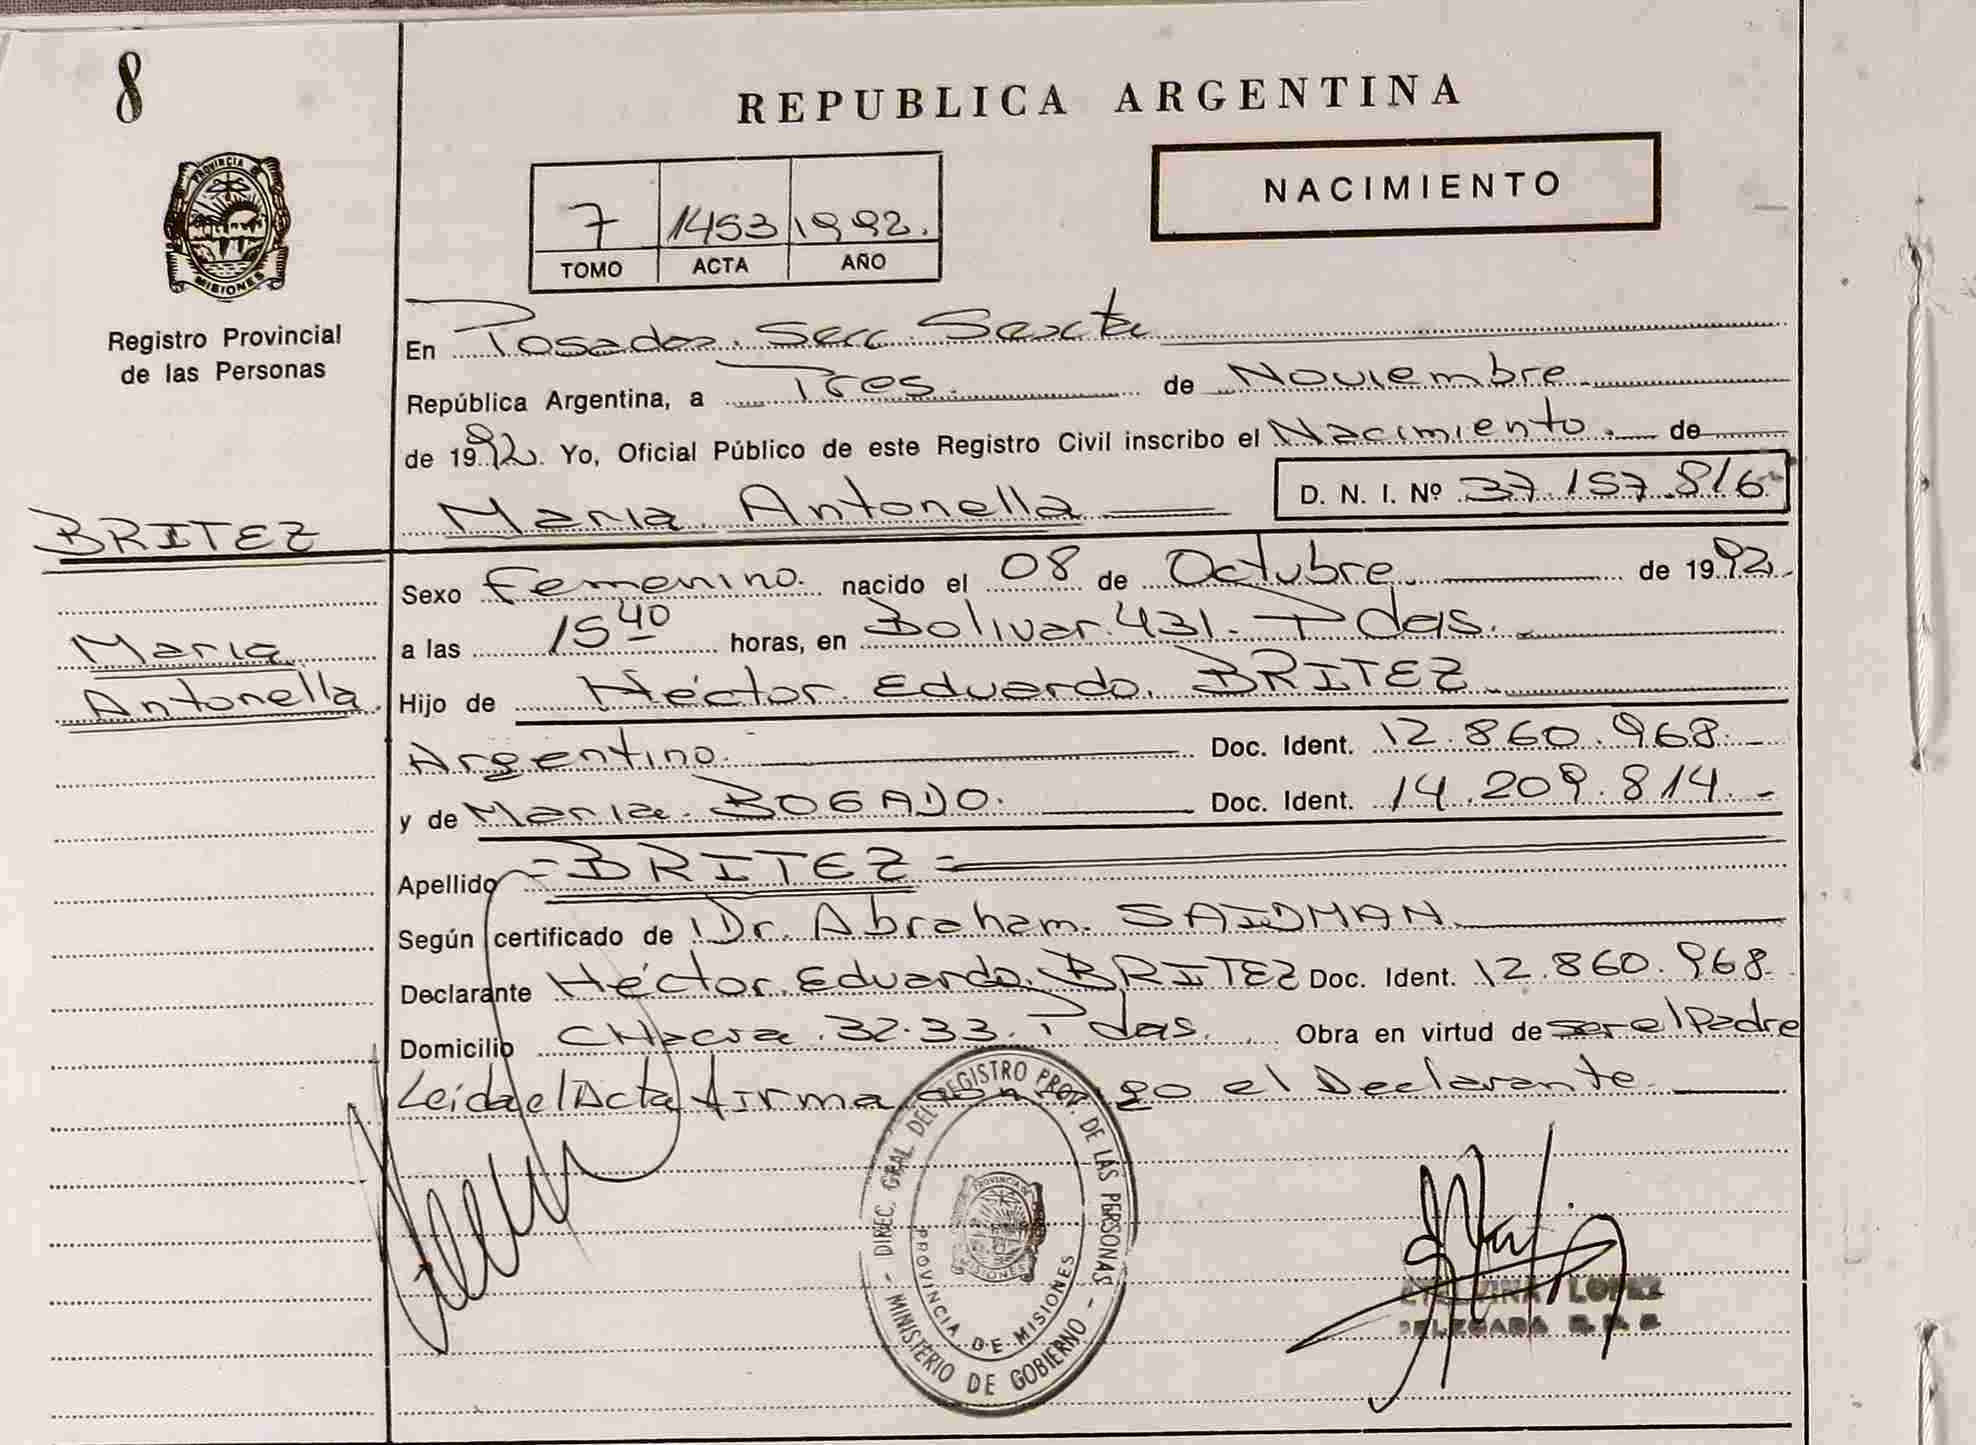 8
REPUBLICA ARGENTINA
PROVINCIA DE
MISIONES
NACIMIENTO
7 1453 1992.
TOMO ACTA AÑO
Registro Provincial
de las Personas
En Posadas. Secc. Sexta
República Argentina, a Tres. de Noviembre
de 1992. Yo, Oficial Público de este Registro Civil inscribo el Nacimiento. de
Maria Antonella D. N. I. Nº 37.157.816
BRITEZ
Maria
Antonella.
Sexo Femenino. nacido el 08 de Octubre de 1992.
a las 15 40 horas, en Bolivar. 431. Pdas.
Hijo de Héctor. Eduardo. BRITEZ
Argentino. Doc. Ident. 12.860.968.
y de Maria. BOGADO. Doc. Ident. 14.209.814.
Apellido =BRITEZ=
Según certificado de Dr. Abraham. SAIDMAN.
Declarante Héctor. Eduardo. BRITEZ Doc. Ident. 12.860.968.
Domicilio CHacra. 32-33. Pdas. Obra en virtud de ser el Padre
Leida el Acta firma conmigo el Declarante.
DIREC. GRAL. DEL REGISTRO PROV. DE LAS PERSONAS
MINISTERIO DE GOBIERNO
PROVINCIA DE MISIONES
PROVINCIA DE
MISIONES
LOPEZ
DELEGADA